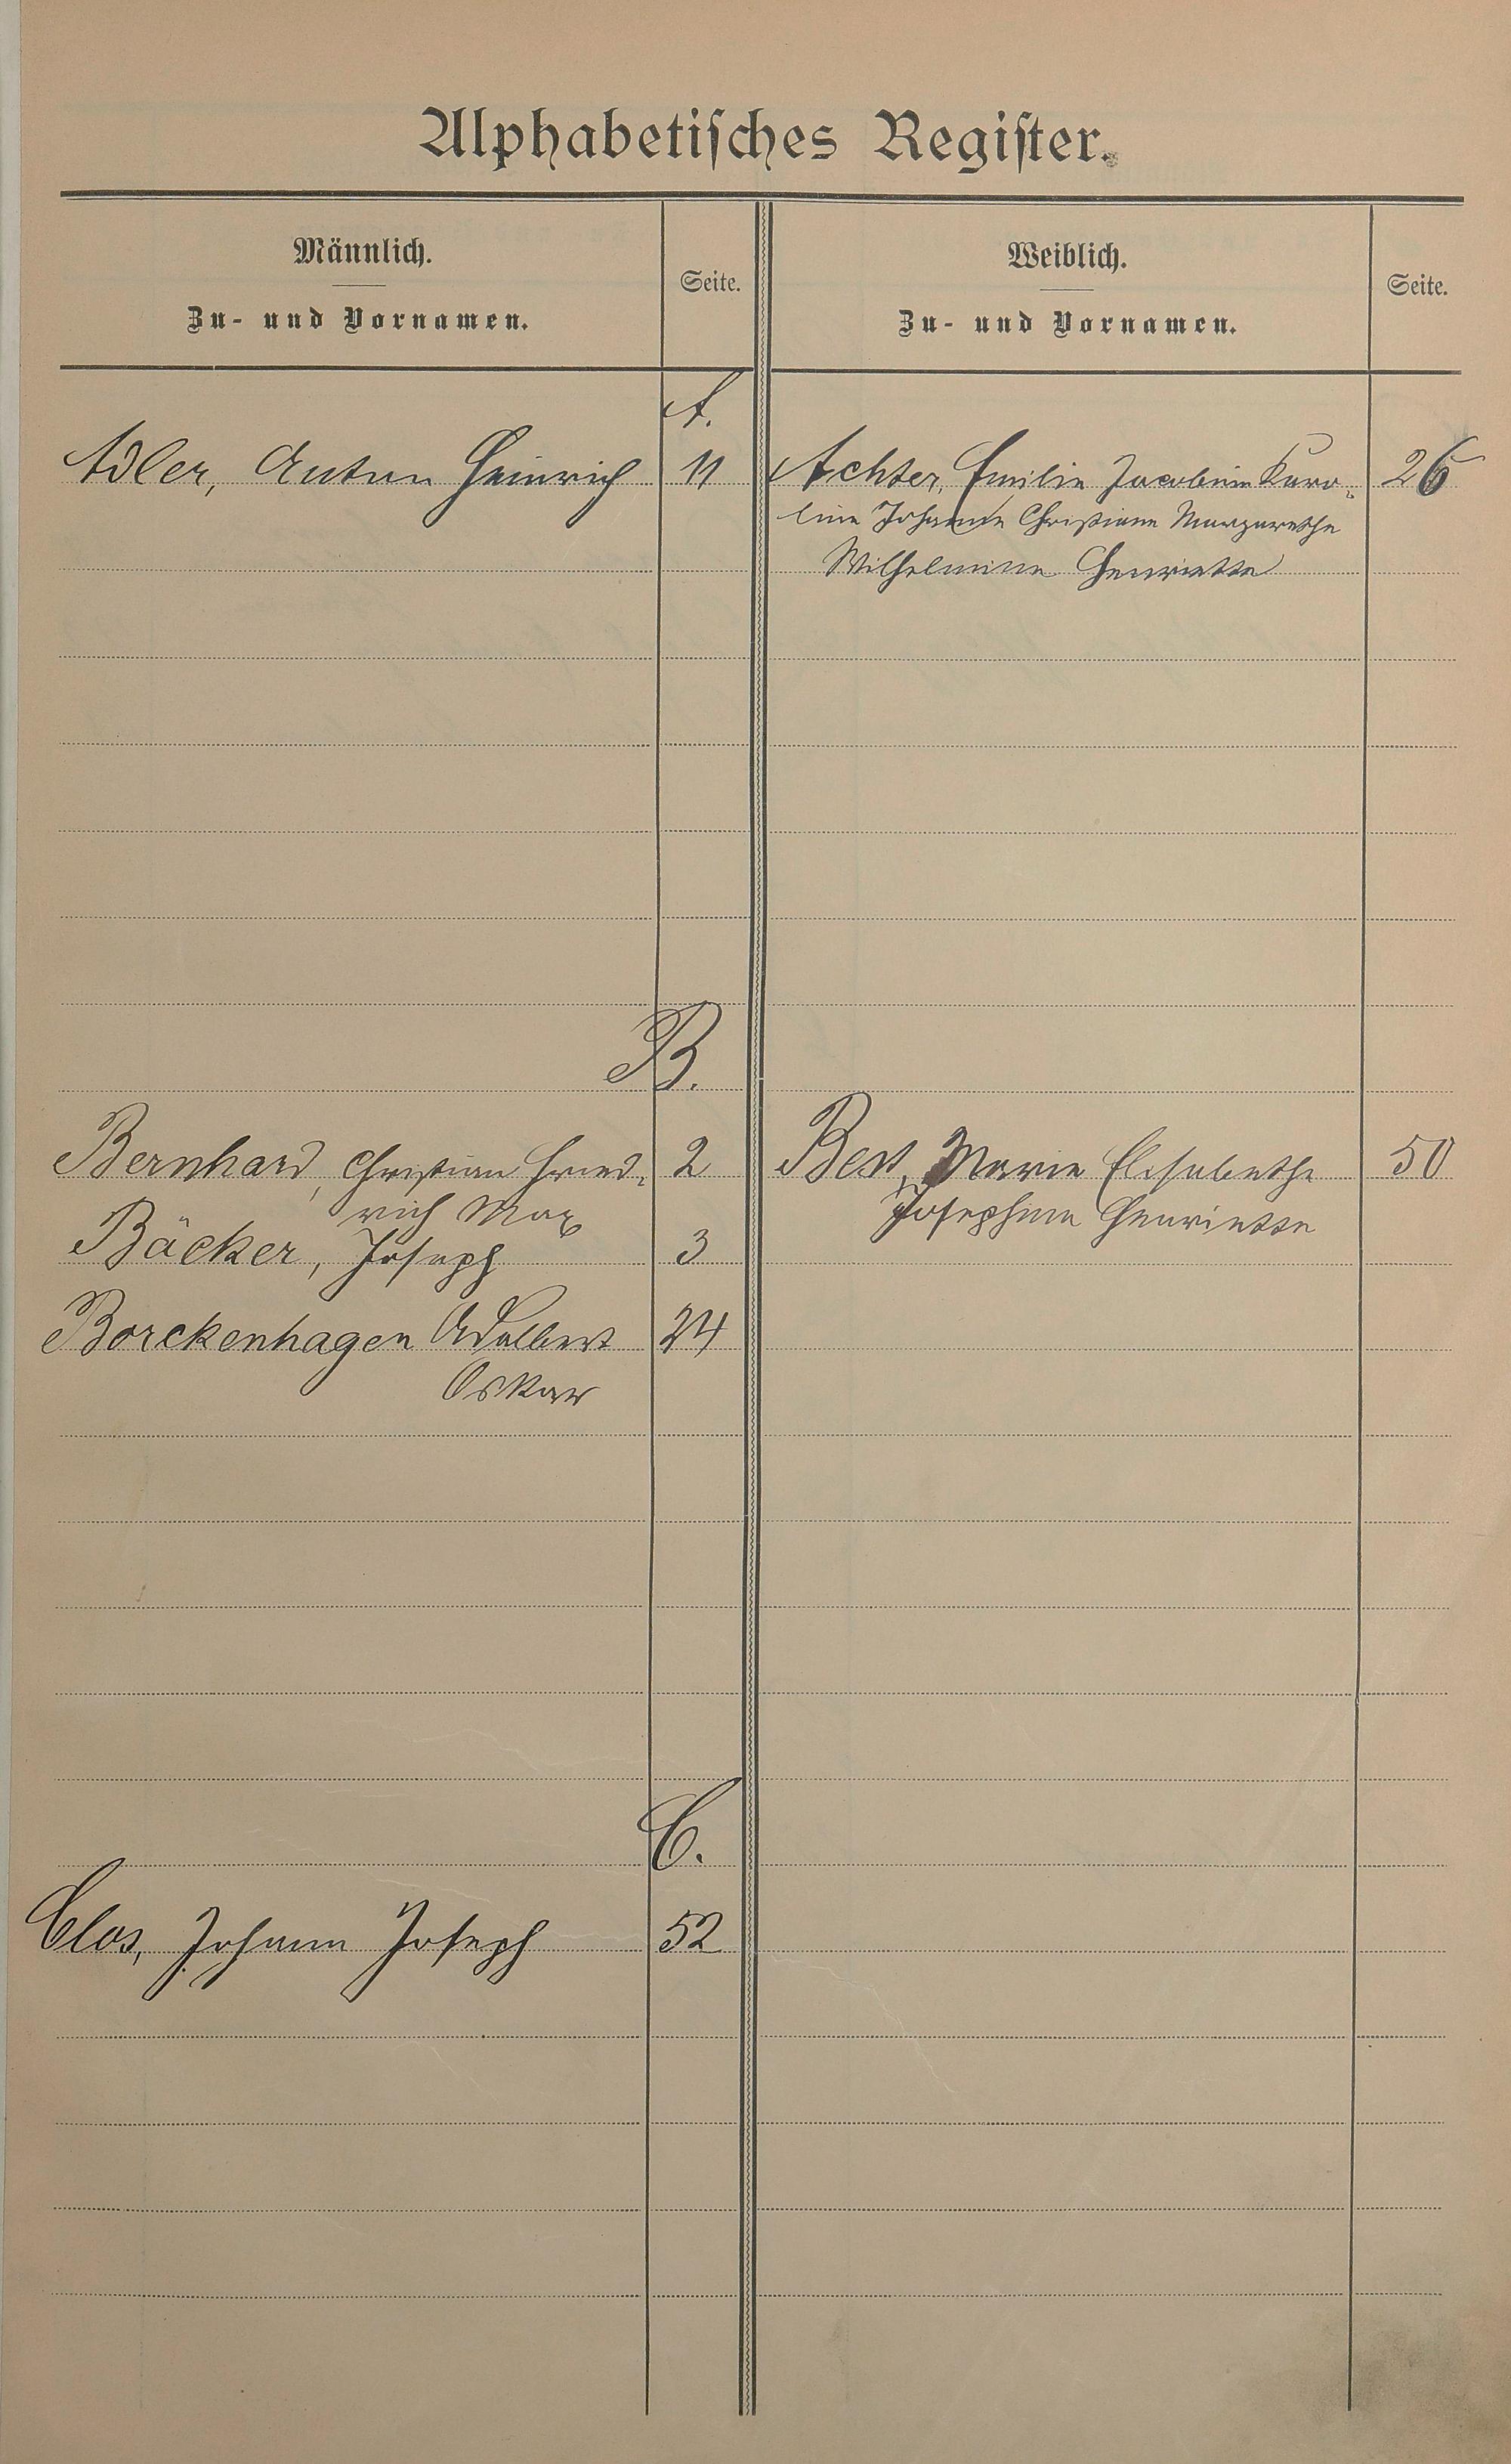 Alphabetisches Register.
Männlich.
Zu- und Vornamen.
Seite.
Weiblich.
Zu- und Vornamen.
Seite.
A.
Adler, Anton Heinrich 11
Achter, Emilie Jacobine Karo- 26
line Johanne Christiane Margarethe
Wilhelmine Henriette
B.
Bernhard, Christian Fried- 2
rich Max
Bäcker, Joseph 3
Borckenhagen Adalbert 24
Oskar
Best, Marie Elisabethe 50
Josephine Henriette
C.
Clos, Johann Joseph 52